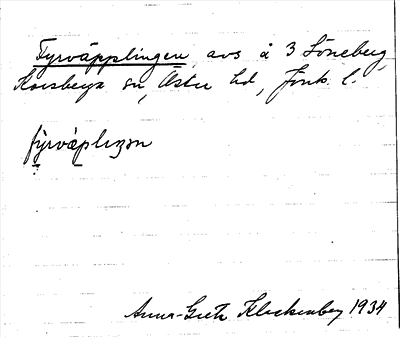 Fyrväpplingen, avs å 3 Löneberg,
Korsberga sn, Östra hd, Jönk. l.
fy̤rvàp̤lɪŋən
Anna-Greta Kleckenberg 1934